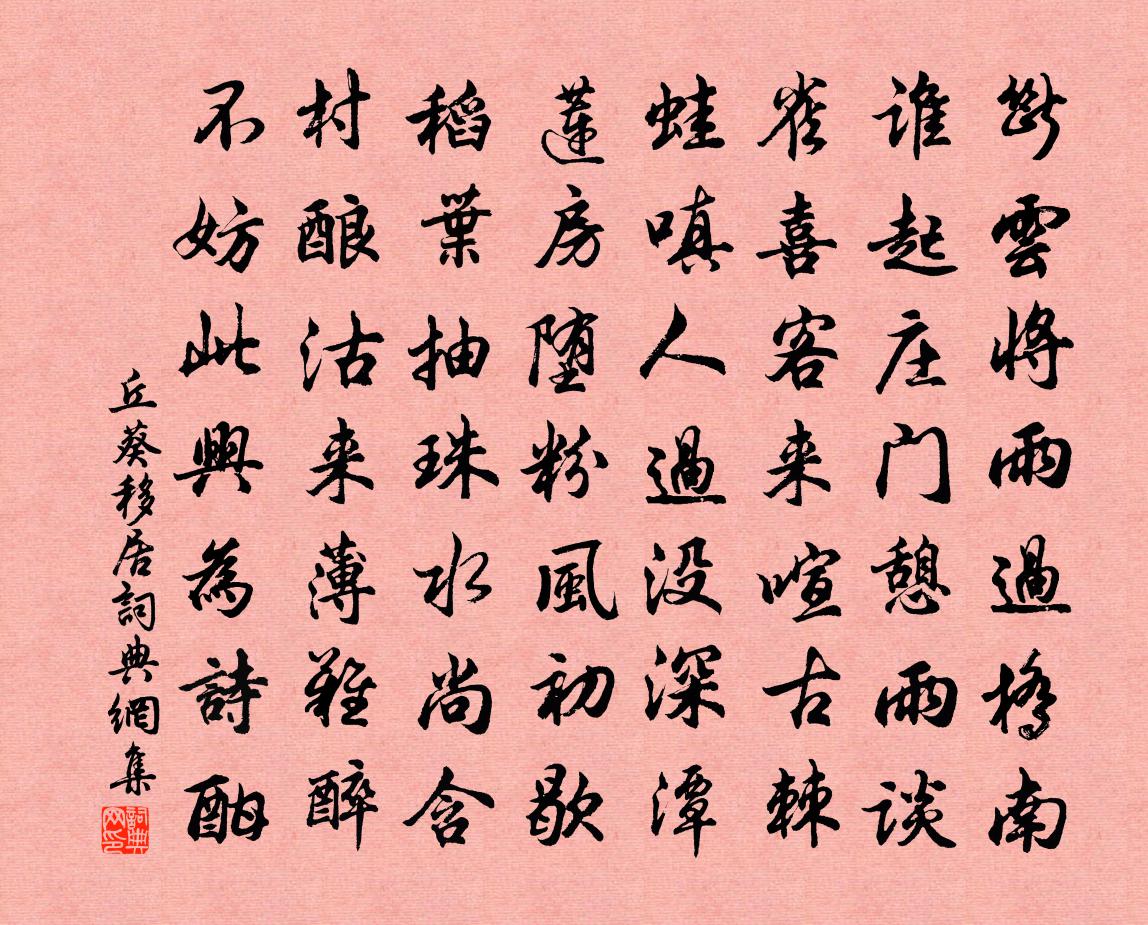 斷雲將雨過橋南
谁起庄门憩雨谈
雀喜客来喧古棘
蛙嗔人過没深潭
蓮房堕粉風初歇
稻葉抽珠水尚含
村酿沽来薄難醉
不妨此興為詩酣
丘葵移居詞典網集
詞典网印